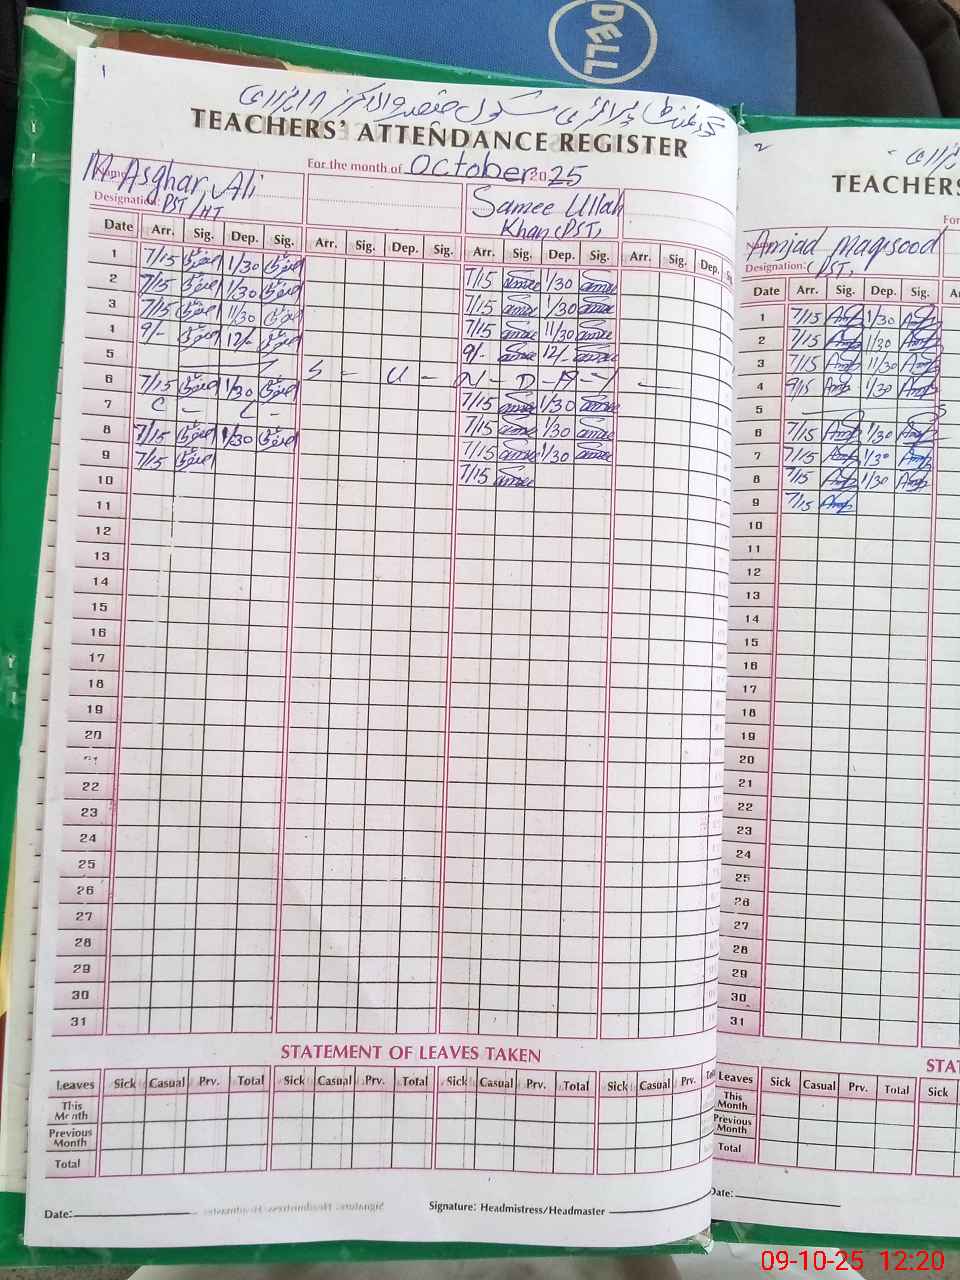 DELL
1
TEACHERS' ATTENDANCE REGISTER
For the month of October 2025
Name M Asghar Ali
Designation: PST/HT
Samee Ullah
Khan (PST)
Date Arr. Sig. Dep. Sig. Arr. Sig. Dep. Sig. Arr. Sig. Dep. Sig. Arr. Sig. Dep.
1 7/15 1/30 7/15 Samee 1/30 Samee
2 7/15 1/30 7/15 Samee 1/30 Samee
3 7/15 11/30 7/15 Samee 11/30 Samee
9/- 12/- 9/- Samee 12/- Samee
5 S - U - N - D - A - Y
6 7/15 1/30 7/15 Samee 1/30 Samee
7 C - L - 7/15 Samee 1/30 Samee
8 7/15 1/30 7/15 Samee 1/30 Samee
9 7/15 7/15 Samee
10
11
12
13
14
15
16
17
18
19
20
22
23
24
25
26
27
28
29
30
31
STATEMENT OF LEAVES TAKEN
Leaves Sick Casual Prv. Total Sick Casual Prv. Total Sick Casual Prv. Total Sick Casual Prv.
This Month
Previous Month
Total
Date: Signature: Headmistress/Headmaster
2
TEACHERS
Name Amjad Maqsood
Designation: PST
Date Arr. Sig. Dep. Sig.
1 7/15 Amj 1/30 Amj
2 7/15 Amj 1/30 Amj
3 7/15 Amj 11/30 Amj
4 9/15 Amj 1/30 Amj
5 S
6 7/15 Amj 1/30 Amj
7 7/15 Amj 1/30 Amj
8 7/15 Amj 1/30 Amj
9 7/15 Amj
10
11
12
13
14
15
16
17
18
19
20
21
22
23
24
25
26
27
28
29
30
31
Leaves Sick Casual Prv. Total Sick
This Month
Previous Month
Total
Date:
09-10-25 12:20